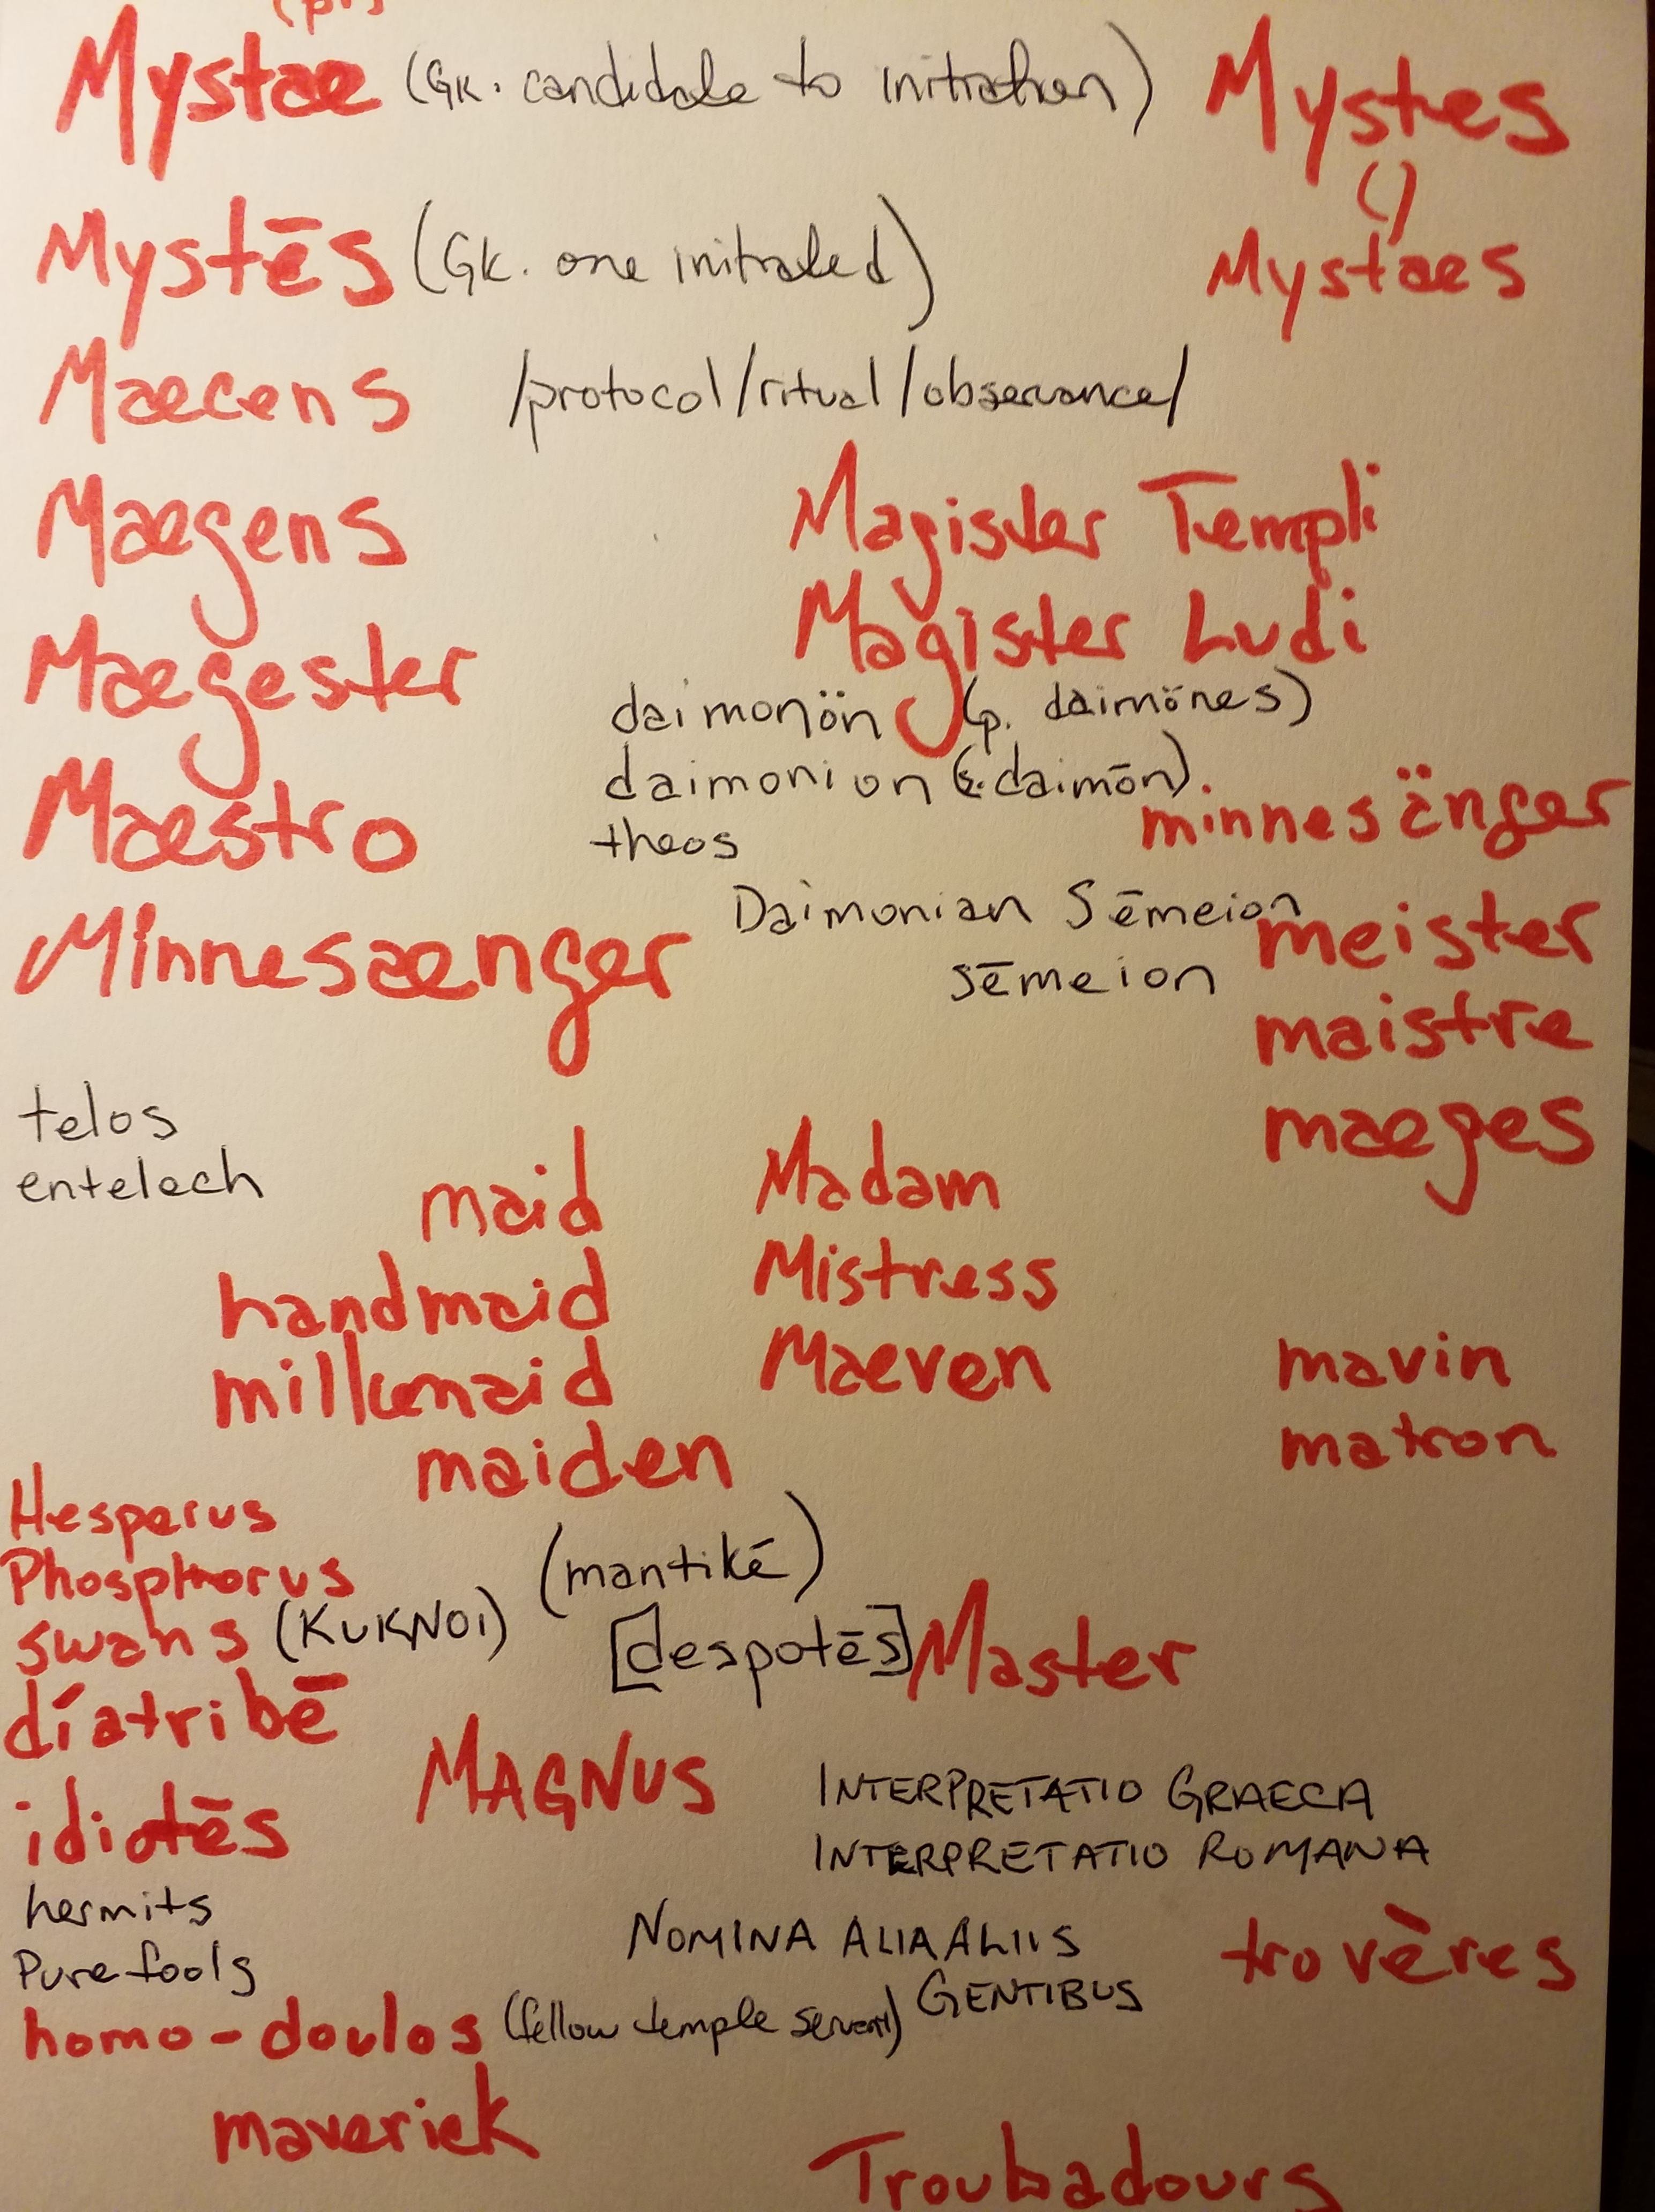 (pl)
Mystae (Gk. candidate to initiation) Mystes
()
Mystēs (Gk. one initiated) Mystaes
Maecens /protocol/ritual/observance/
Maegens Magister Templi
Maegester Magister Ludi
daimonön (p. daimönes)
Maestro daimonion (s. daimōn).
theos minnesänger
Minnesaenger Daimonian Sēmeion meister
sēmeion
maistre
telos maeges
entelech
maid Madam
handmaid Mistress
milkmaid Maeven mavin
maiden matron
Hesperus
Phosphorus (mantikē)
swans (KUKNOI) [despotēs] Master
díatribē
MAGNUS INTERPRETATIO GRAECA
idiotēs INTERPRETATIO ROMANA
hermits
Pure fools NOMINA ALIA ALIIS trovères
GENTIBUS
homo-doulos (fellow temple servant)
maverick
Troubadours